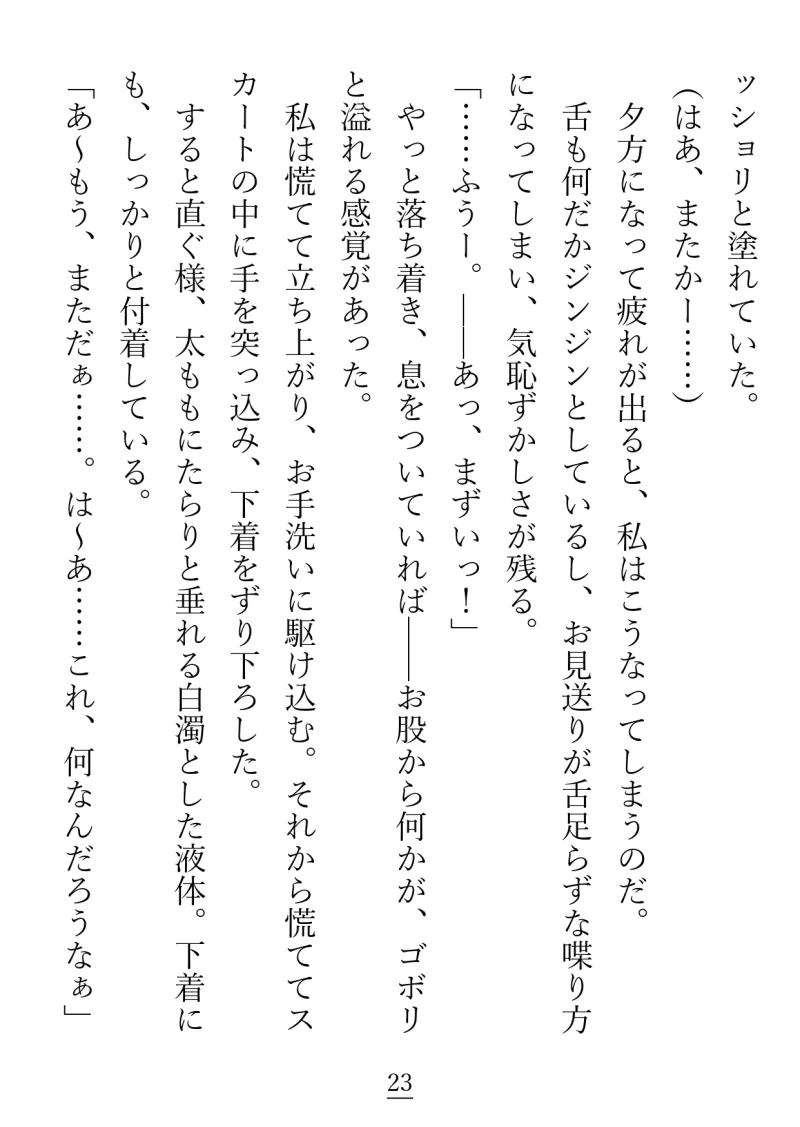 ッショリと塗れていた。
（はあ、またかー……）
夕方になって疲れが出ると、私はこうなってしまうのだ。
舌も何だかジンジンとしているし、お見送りが舌足らずな喋り方
になってしまい、気恥ずかしさが残る。
「……ふうー。――あっ、まずいっ！」
やっと落ち着き、息をついていれば――お股から何かが、ゴボリ
と溢れる感覚があった。
私は慌てて立ち上がり、お手洗いに駆け込む。それから慌ててス
カートの中に手を突っ込み、下着をずり下ろした。
すると直ぐ様、太ももにたらりと垂れる白濁とした液体。下着に
も、しっかりと付着している。
「あ〜もう、まただぁ……。は〜あ……これ、何なんだろうなぁ」
23